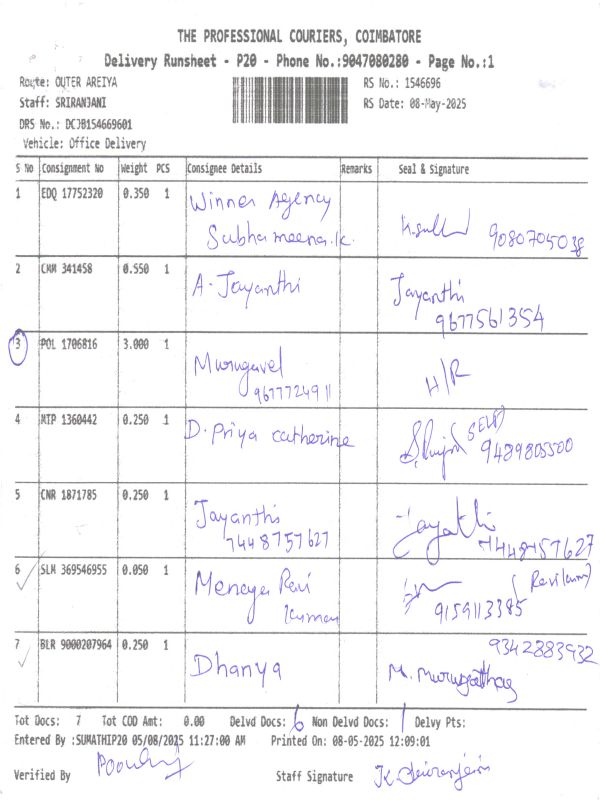 THE PROFESSIONAL COURIERS, COIMBATORE
Delivery Runsheet - P20 - Phone No.:9047080280 - Page No.:1
Route: OUTER AREIYA
RS No.: 1546696
Staff: SRIRANJANI
RS Date: 08-May-2025
DRS No.: DCJB154669601
Vehicle: Office Delivery
S No Consignment No Weight PCS Consignee Details Remarks Seal & Signature
1 EDQ 17752320 0.350 1 Winner Agency
Subhameena.K. 9080705038
2 CMM 341458 0.550 1 A. Jayanthi Jayanthi
9677561354
3 POL 1706816 3.000 1 Murugavel H/R
9677724911
4 MTP 1360442 0.250 1 D. Priya catherine SELF
9489805500
5 CNR 1871785 0.250 1 Jayanthi Jayathi
7448757627 7448757627
6 SLM 369546955 0.050 1 Menaga Ravi (Ravikumar)
Kumar 9159113385
7 BLR 9000207964 0.250 1 Dhanya 9342883932
M.
Tot Docs: 7 Tot COD Amt: 0.00 Delvd Docs: 6 Non Delvd Docs: 1 Delvy Pts:
Entered By :SUMATHIP20 05/08/2025 11:27:00 AM Printed On: 08-05-2025 12:09:01
Verified By Staff Signature